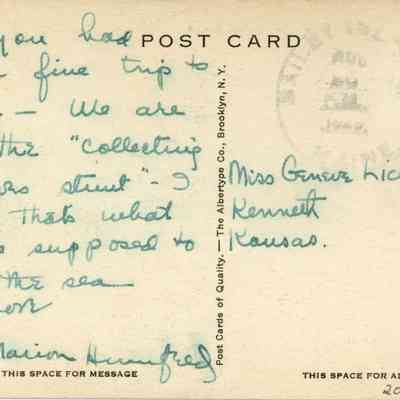 POST CARD
you had
fine trip to
— We are
the "collecting
stunt" - I
that's what
supposed to
the sea
Marion
THIS SPACE FOR MESSAGE
Post Cards of Quality. — The Albertype Co., Brooklyn, N. Y.
BAILEY
Miss Geneve
Kenneth
Kansas.
THIS SPACE FOR
20